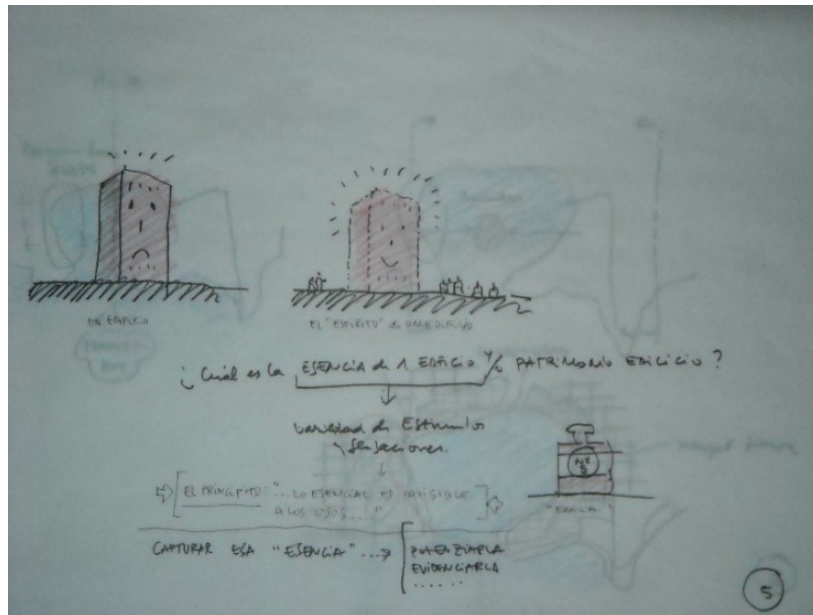 UN EDIFICIO
EL "ESPIRITU" de UN EDIFICIO
¿Cuál es la ESENCIA de 1 EDIFICIO y/o PATRIMONIO EDILICIO?
variedad de Estimulos
y sensaciones.
EL PRINCIPITO: "...LO ESENCIAL ES INVISIBLE
A LOS OJOS...."
Nº
5
"ESENCIA"
CAPTURAR ESA "ESENCIA"...
POTENZIARLA
EVIDENCIARLA
......
5